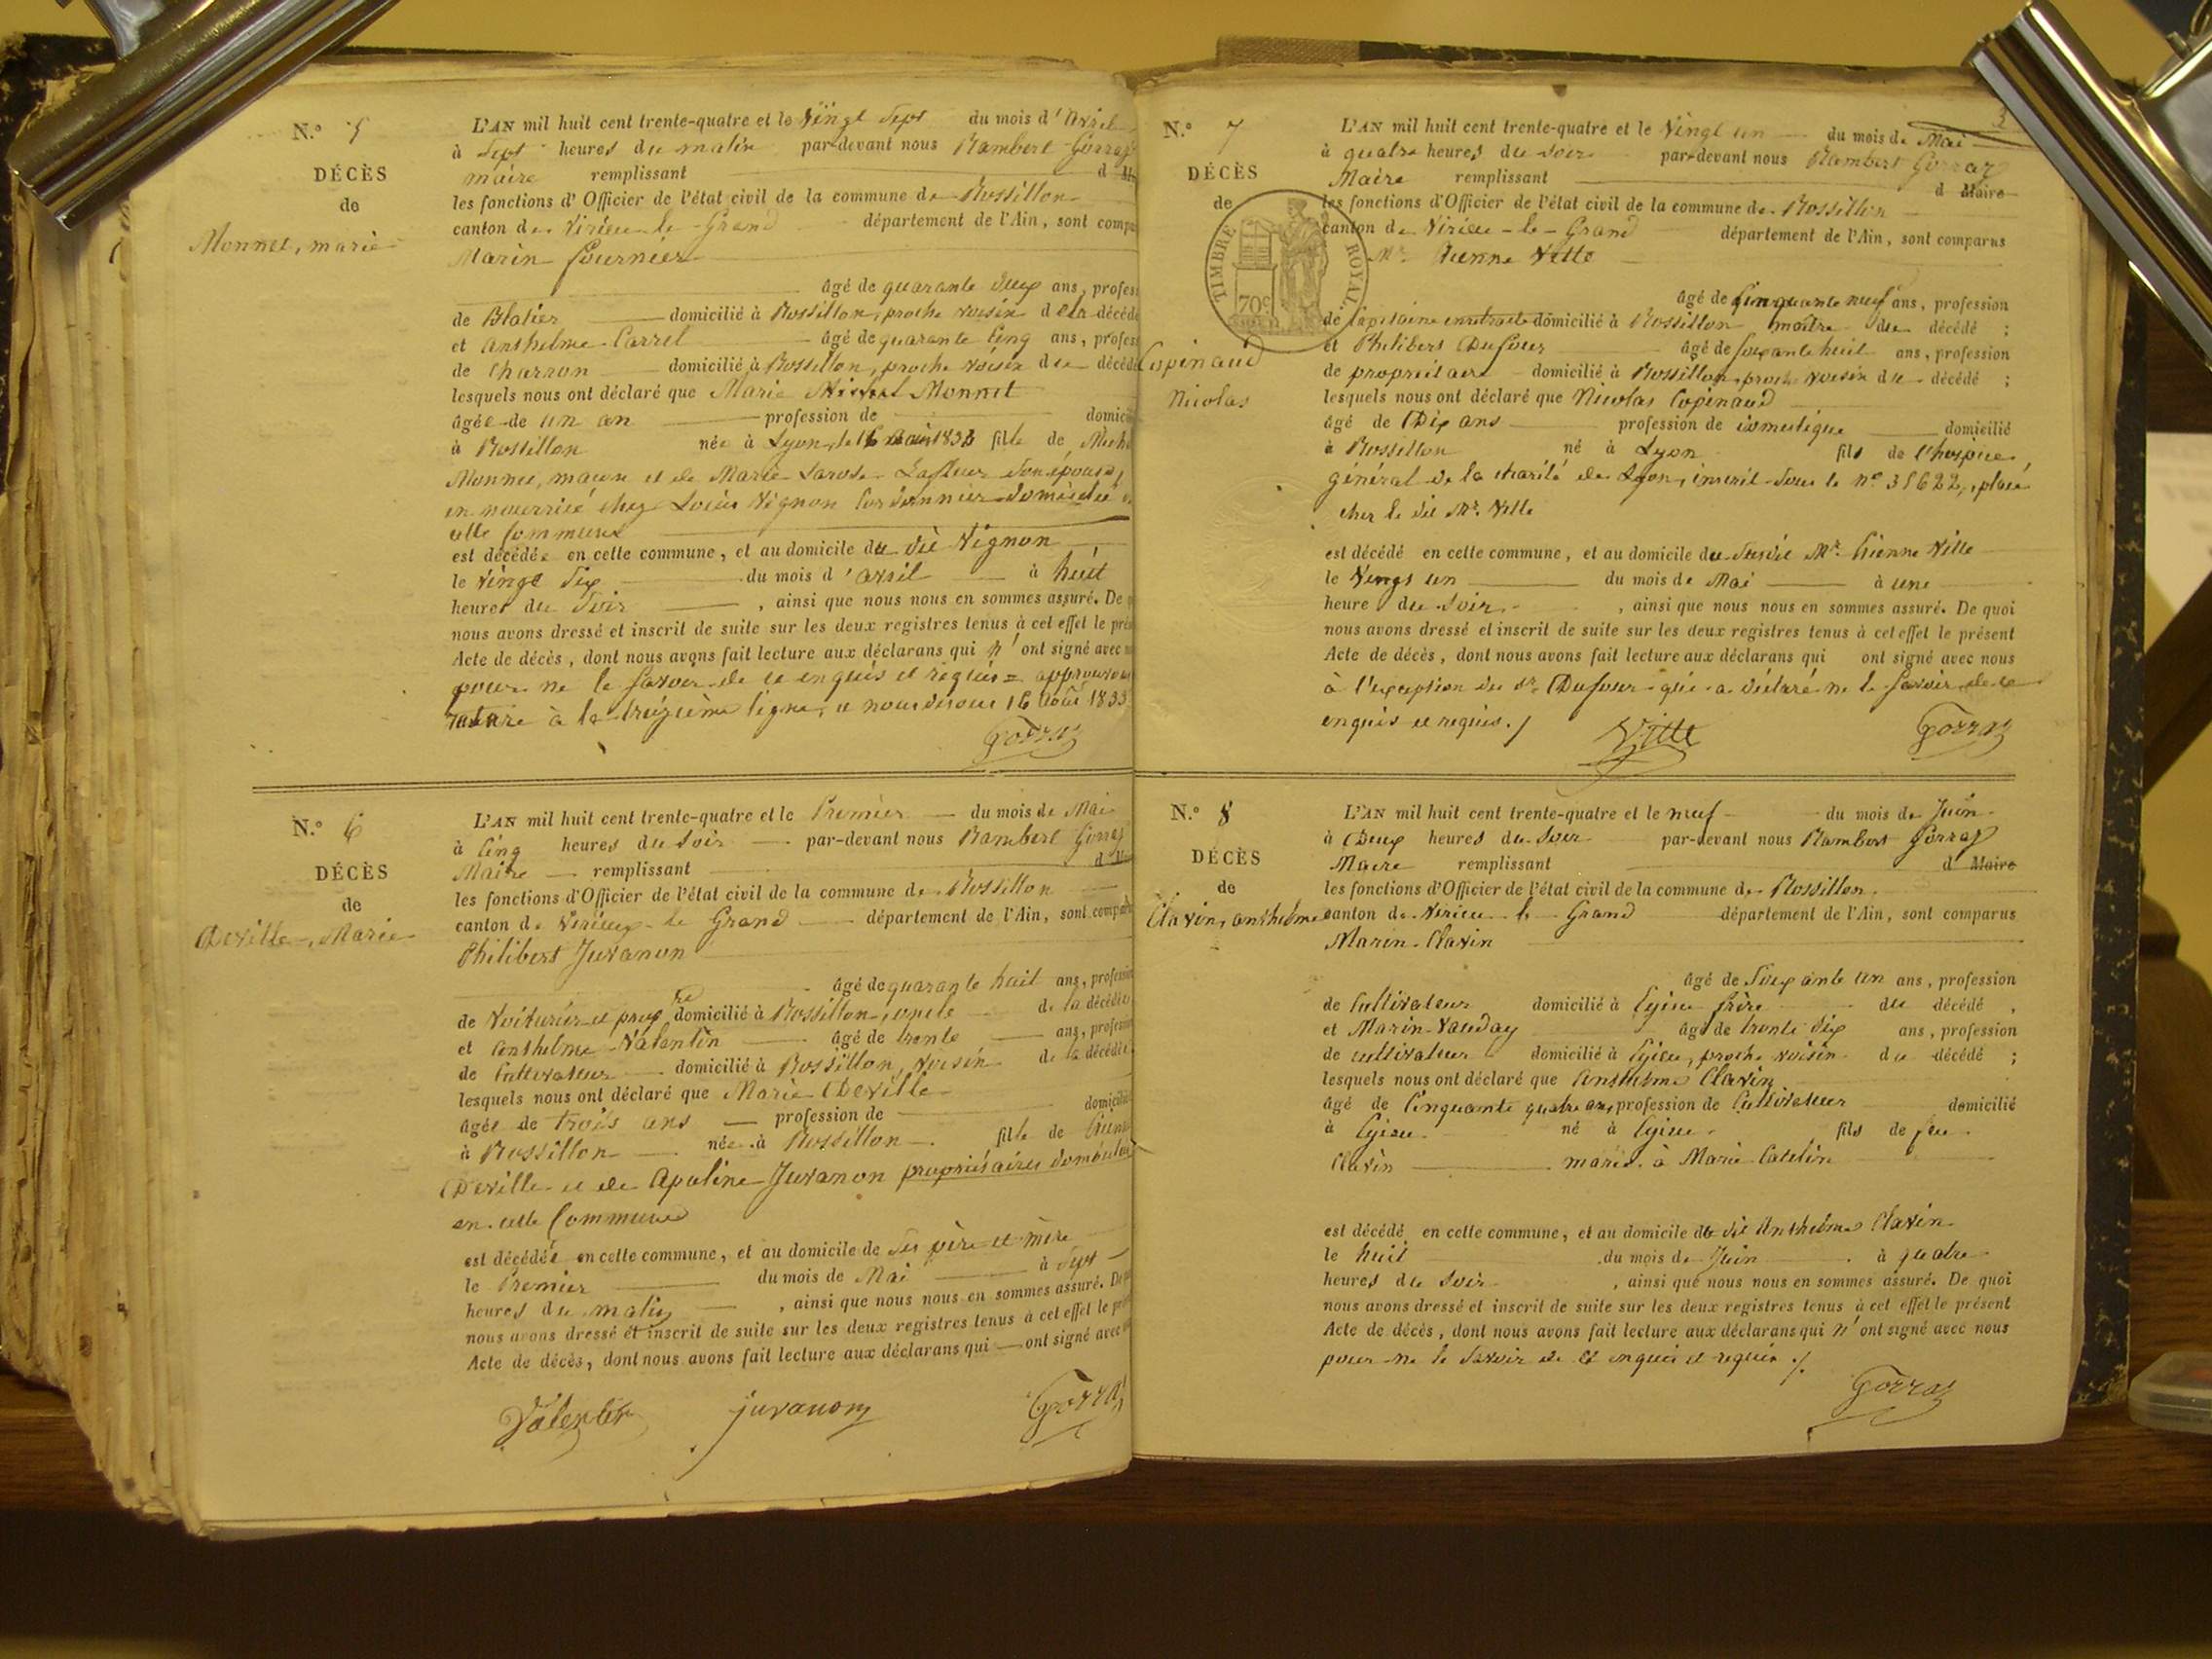 N.° 5
DÉCÈS
de
Monnet, marie
L'AN mil huit cent trente-quatre et le vingt sept du mois d'avril
à sept heures du matin par-devant nous Rambert Gorraz
maire remplissant d
les fonctions d'Officier de l'état civil de la commune de Rossillon
canton de Virieu-le-Grand département de l'Ain, sont
Marin fournier
âgé de quarante deux ans,
de Blatier domicilié à Rossillon, proche voisin de la
et Anthelme Carrel âgé de quarante cinq ans,
de charron domicilié à Rossillon, proche voisin du
lesquels nous ont déclaré que Marie Monnet
âgée de un an profession de
à Rossillon née à Lyon, le 16 fille de
Monnet, maçon et de Marie son épouse,
en nourrice chez Louis Vignon Cordonnier domicilié
cette Commune
est décédée en cette commune, et au domicile du dit Vignon
le vingt six du mois d'avril à huit
heures du soir, ainsi que nous nous en sommes assuré. De
nous avons dressé et inscrit de suite sur les deux registres tenus à cet effet le
Acte de décès, dont nous avons fait lecture aux déclarans qui n'ont signé avec
pour ne le savoir de ce enquis et requis =
à la treizième ligne, et nous disons 16 Août 1833
Gorraz
N.° 6
DÉCÈS
de
Deville, Marie
L'AN mil huit cent trente-quatre et le Premier du mois de Mai
à cinq heures du soir par-devant nous Rambert Gorraz
Maire remplissant d
les fonctions d'Officier de l'état civil de la commune de Rossillon
canton de Virieux-le-Grand département de l'Ain, sont
Philibert Juvanon
âgé de quarante huit ans,
de Voiturier et domicilié à Rossillon, oncle de la décédée
et Anthelme Valentin âgé de trente ans,
de Cultivateur domicilié à Rossillon, voisin de la décédée
lesquels nous ont déclaré que Marie Deville
âgée de trois ans profession de
à Rossillon née à Rossillon fille de
Deville et de Apoline Juvanon propriétaires
en cette Commune
est décédée en cette commune, et au domicile de ses père et mère
le Premier du mois de Mai à sept
heures du matin, ainsi que nous nous en sommes assuré. De
nous avons dressé et inscrit de suite sur les deux registres tenus à cet effet le
Acte de décès, dont nous avons fait lecture aux déclarans qui ont signé avec
Valentin juvanon Gorraz
3
N.° 7
DÉCÈS
de
TIMBRE ROYAL
70c
Copinaud
Nicolas
L'AN mil huit cent trente-quatre et le Vingt un du mois de Mai
à quatre heures du soir par-devant nous Rambert Gorraz
Maire remplissant d Maire
les fonctions d'Officier de l'état civil de la commune de Rossillon
canton de Virieu-le-Grand département de l'Ain, sont comparus
Mr. Etienne Ville
âgé de Cinquante neuf ans, profession
de Capitaine en retraite domicilié à Rossillon maître du décédé ;
et Philibert Dufour âgé de soixante huit ans, profession
de propriétaire domicilié à Rossillon, proche voisin du décédé ;
lesquels nous ont déclaré que Nicolas Copinaud
âgé de Dix ans profession de domestique domicilié
à Rossillon né à Lyon fils de l'hospice
général de la charité de Lyon, inscrit sous le n° 35622, placé
chez le dit Mr. Ville
est décédé en cette commune, et au domicile du susdit Mr. Etienne Ville
le Vingt un du mois de Mai à une
heure du soir, ainsi que nous nous en sommes assuré. De quoi
nous avons dressé et inscrit de suite sur les deux registres tenus à cet effet le présent
Acte de décès, dont nous avons fait lecture aux déclarans qui ont signé avec nous
à l'exception du sr. Dufour qui a déclaré ne le savoir de ce
enquis et requis. /
Ville Gorraz
N.° 8
DÉCÈS
de
Clavin, anthelme
L'AN mil huit cent trente-quatre et le neuf du mois de Juin
à Deux heures du soir par-devant nous Rambert Gorraz
Maire remplissant d Maire
les fonctions d'Officier de l'état civil de la commune de Rossillon
canton de Virieu-le-Grand département de l'Ain, sont comparus
Marin Clavin
âgé de Soixante un ans, profession
de Cultivateur domicilié à Egieu frère du décédé ,
et Marin Vauday âgé de trente six ans, profession
de cultivateur domicilié à Egieu, proche voisin du décédé ;
lesquels nous ont déclaré que Anthelme Clavin
âgé de Cinquante quatre ans, profession de Cultivateur domicilié
à Egieu né à Egieu fils de feu
Clavin marié à Marie Catelin
est décédé en cette commune, et au domicile du dit Anthelme Clavin
le huit du mois de Juin à quatre
heures du soir, ainsi que nous nous en sommes assuré. De quoi
nous avons dressé et inscrit de suite sur les deux registres tenus à cet effet le présent
Acte de décès, dont nous avons fait lecture aux déclarans qui n'ont signé avec nous
pour ne le savoir de ce enquis et requis ./.
Gorraz